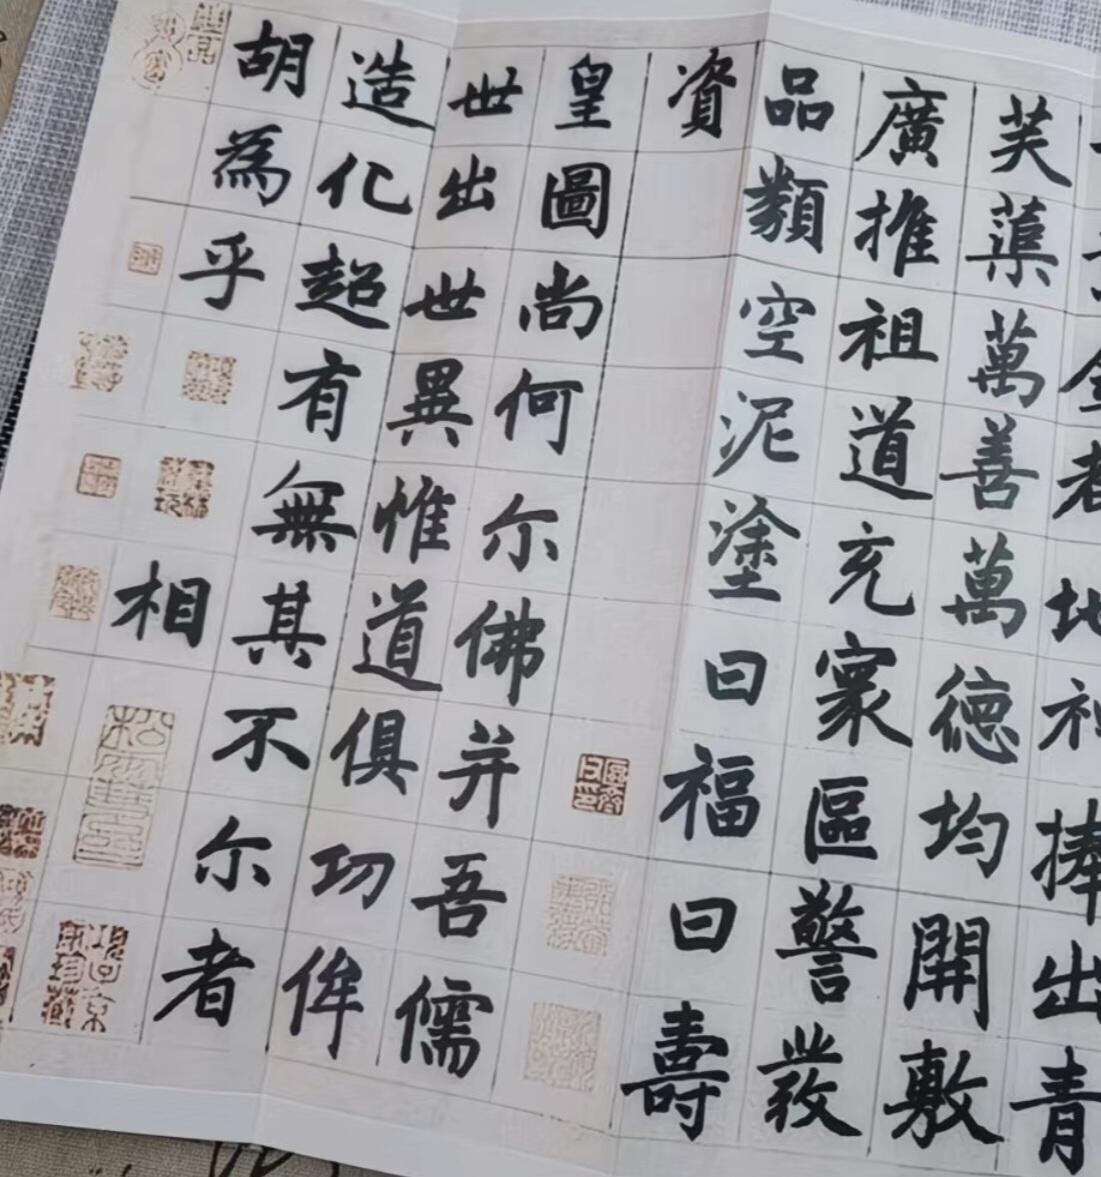 金者地神捧出青
芙蕖萬善萬德均開敷
廣推祖道充寰區警發
品類空泥塗曰福曰壽
資
皇圖尚何尒佛并吾儒
世出世異惟道俱功侔
造化超有無其不尒者
胡為乎
相